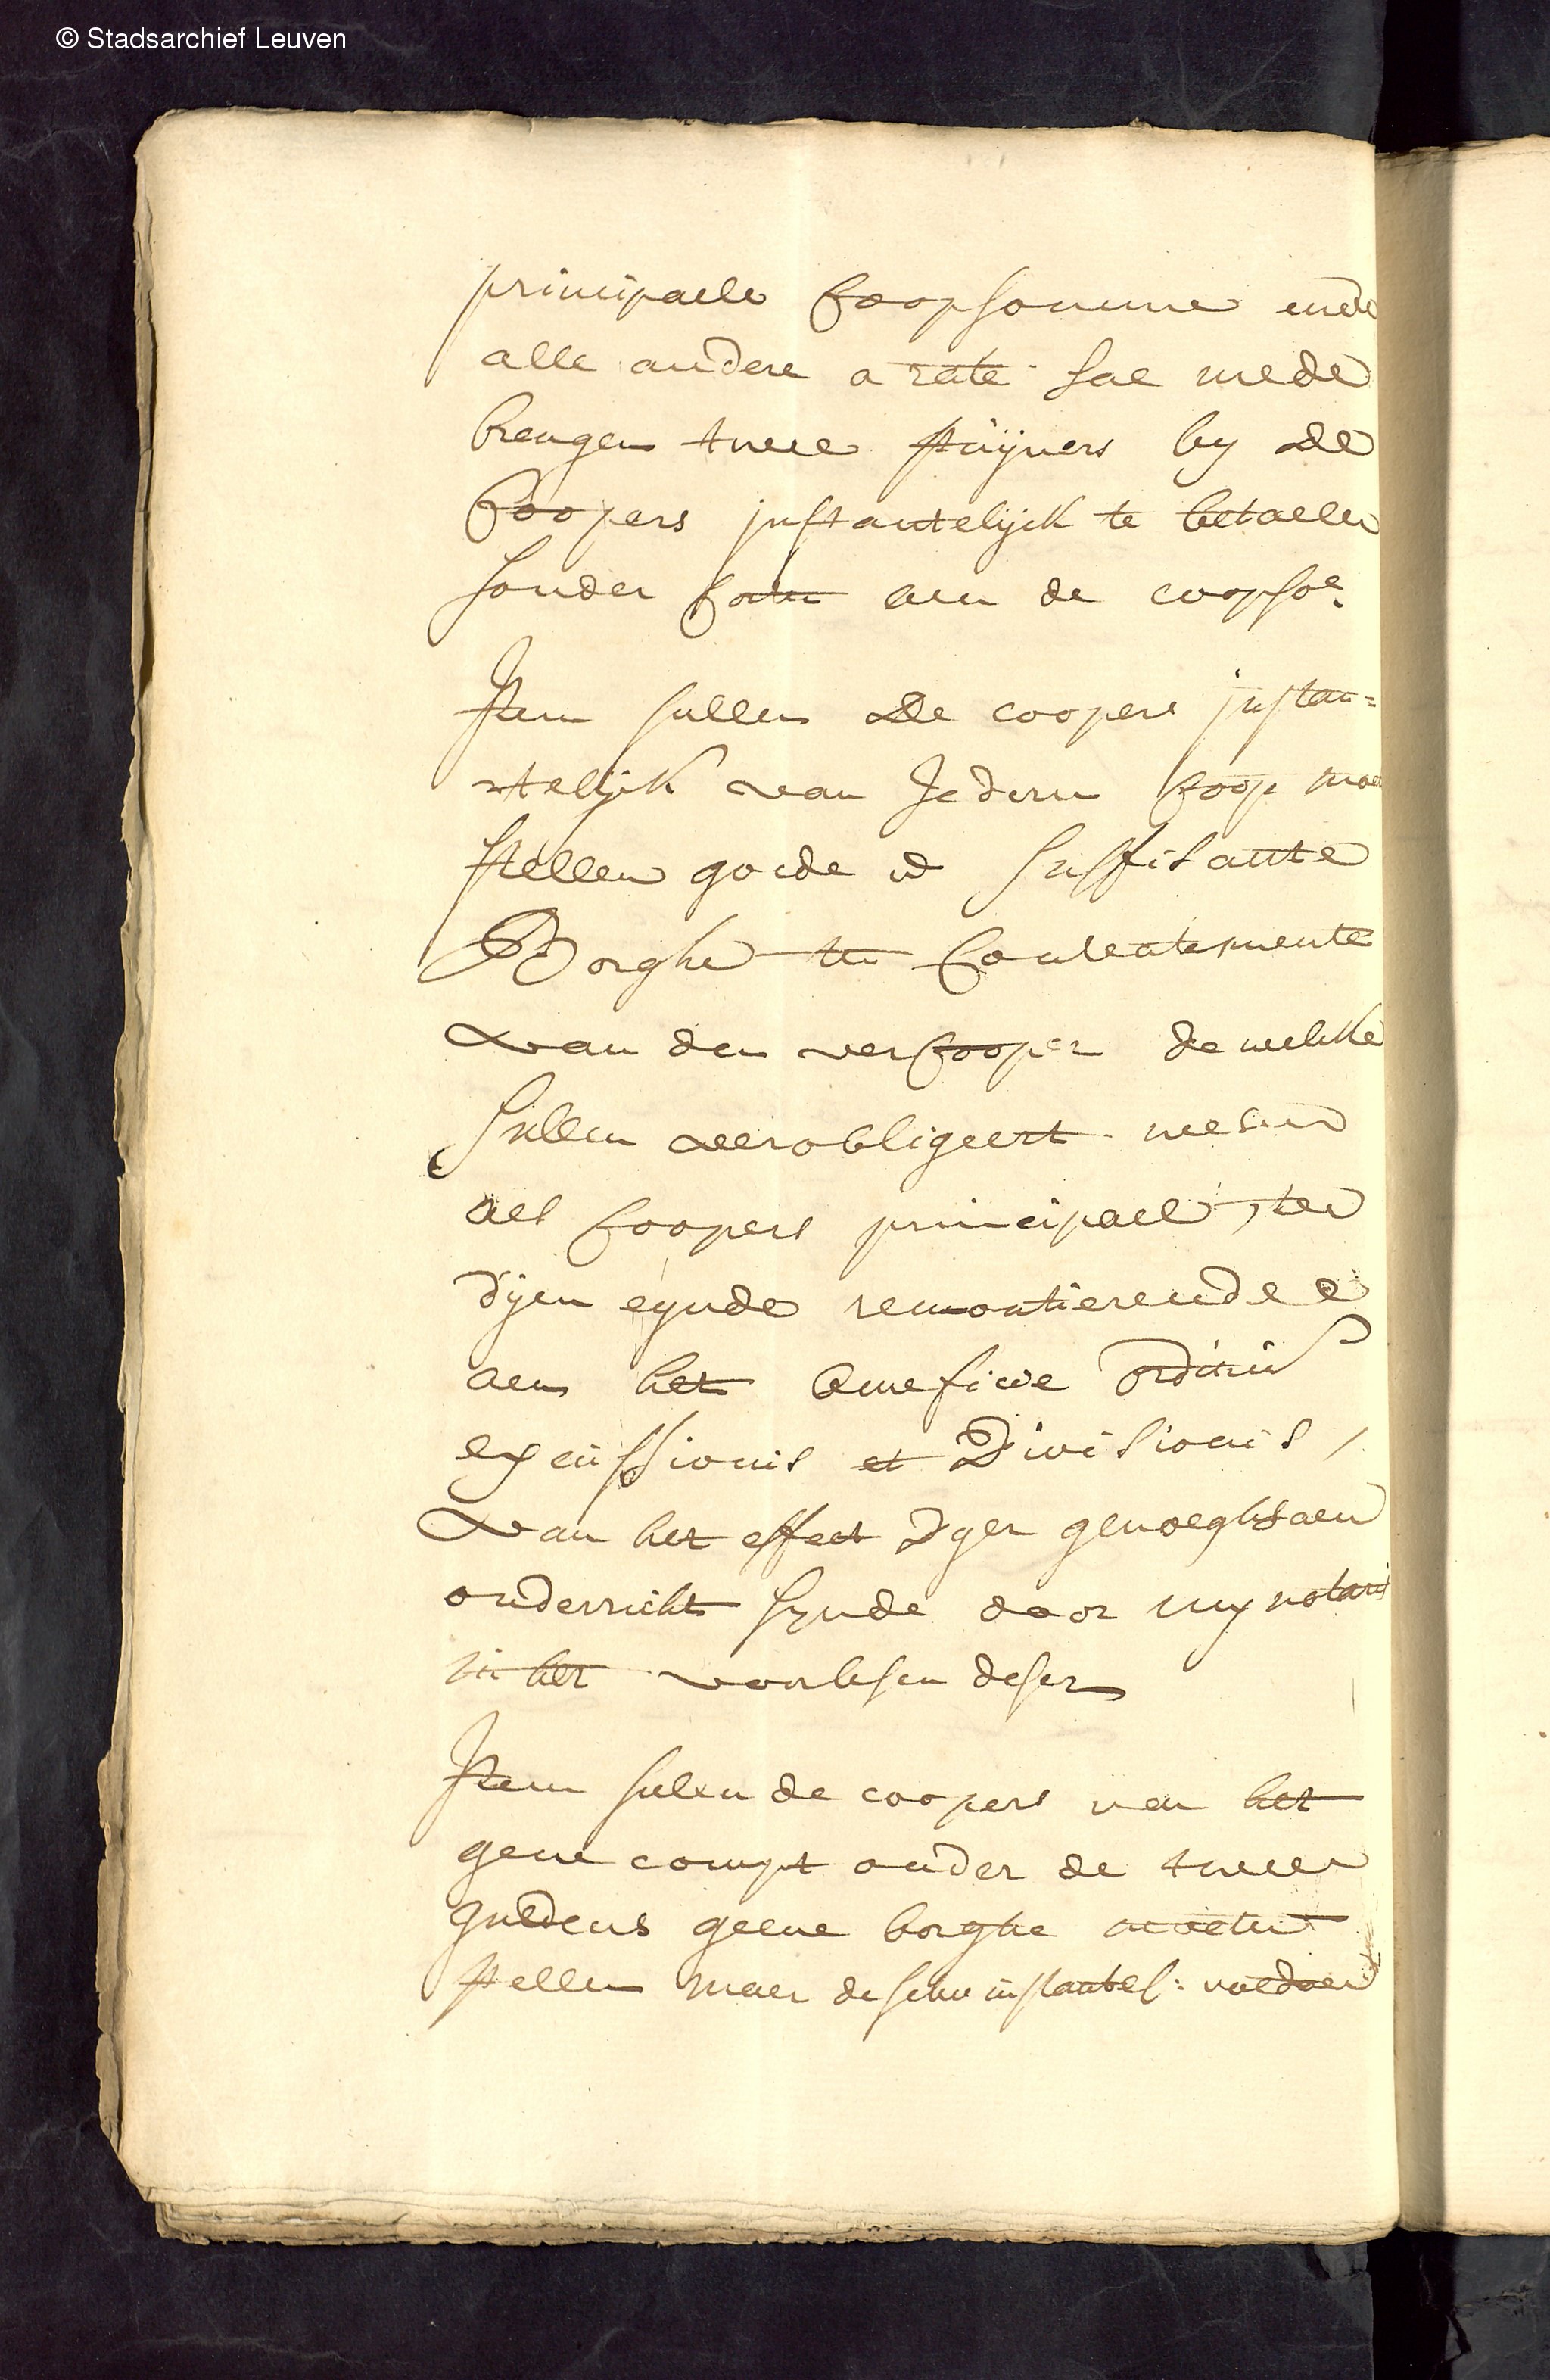 © Stadsarchief Leuven
principaele coopsomme ende
alle andere a rate sal mede
brengen twee stuijvers by de
coopers instantelijck te betaelen
sonder corten aen de coopsoe.
Item sullen de coopers instan=
ntelijck van Iederen coop moe
stellen goede en suffisante
Borghe ten contentemente
van den vercooper de welcke
sullen verobligeert wesen
als coopers principael, ten
dijen eynde renontierende
aen het benefitie ordinis
excussionis et Divisionis,
van het effect dyer genoeghsaem
onderricht synde door my notaris
in het voorlesen deser
Item sullen de coopers van het
gene compt onder de twee
guldens geene borghe moeten
stellen maer de selve instantel: voldoen